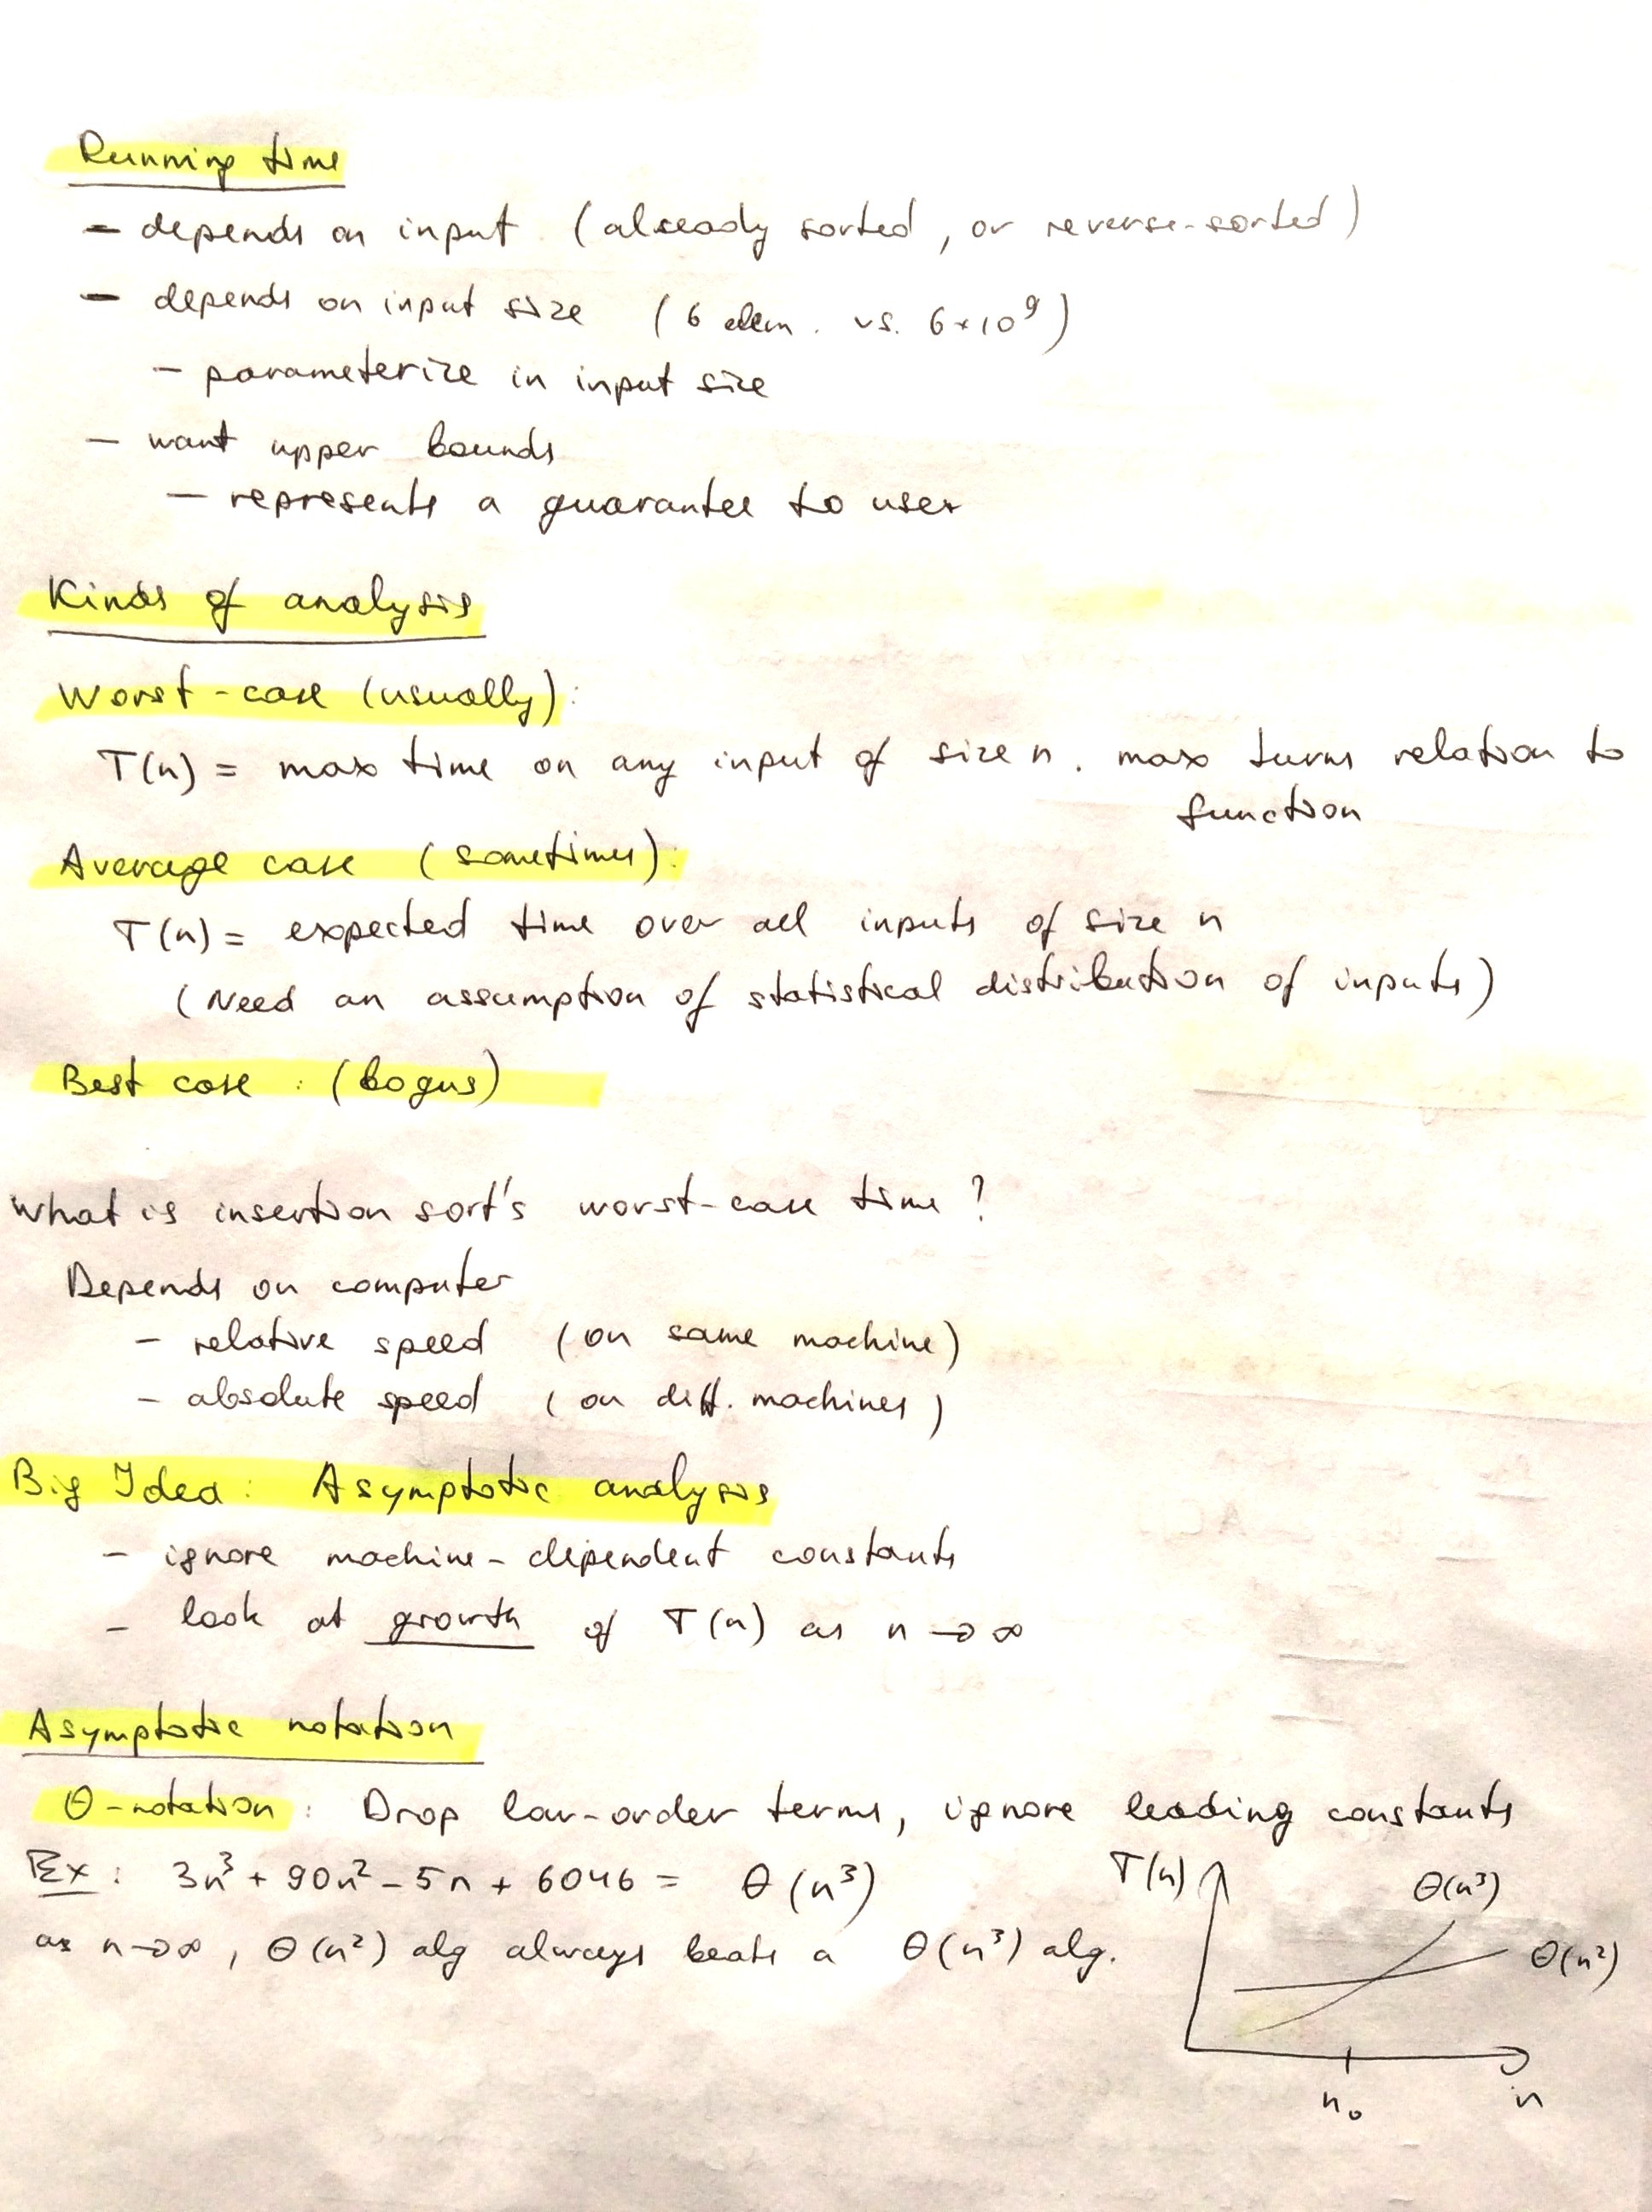 Running time
- depends on input (already sorted, or reverse-sorted)
- depends on input size (6 elem. vs. 6×10⁹)
- parameterize in input size
- want upper bounds
- represents a guarantee to user
Kinds of analysis
Worst-case (usually):
T(n) = max time on any input of size n. max turns relation to
function
Average case (sometimes):
T(n) = expected time over all inputs of size n
(Need an assumption of statistical distribution of inputs)
Best case: (bogus)
What is insertion sort's worst-case time?
Depends on computer
- relative speed (on same machine)
- absolute speed (on diff. machines)
Big Idea: Asymptotic analysis
- ignore machine-dependent constants
- look at growth of T(n) as n → ∞
Asymptotic notation
Θ-notation: Drop low-order terms, ignore leading constants
Ex: 3n³ + 90n² - 5n + 6046 = Θ(n³)
as n→∞, Θ(n²) alg always beats a Θ(n³) alg.
T(n)
Θ(n³)
Θ(n²)
n₀ n